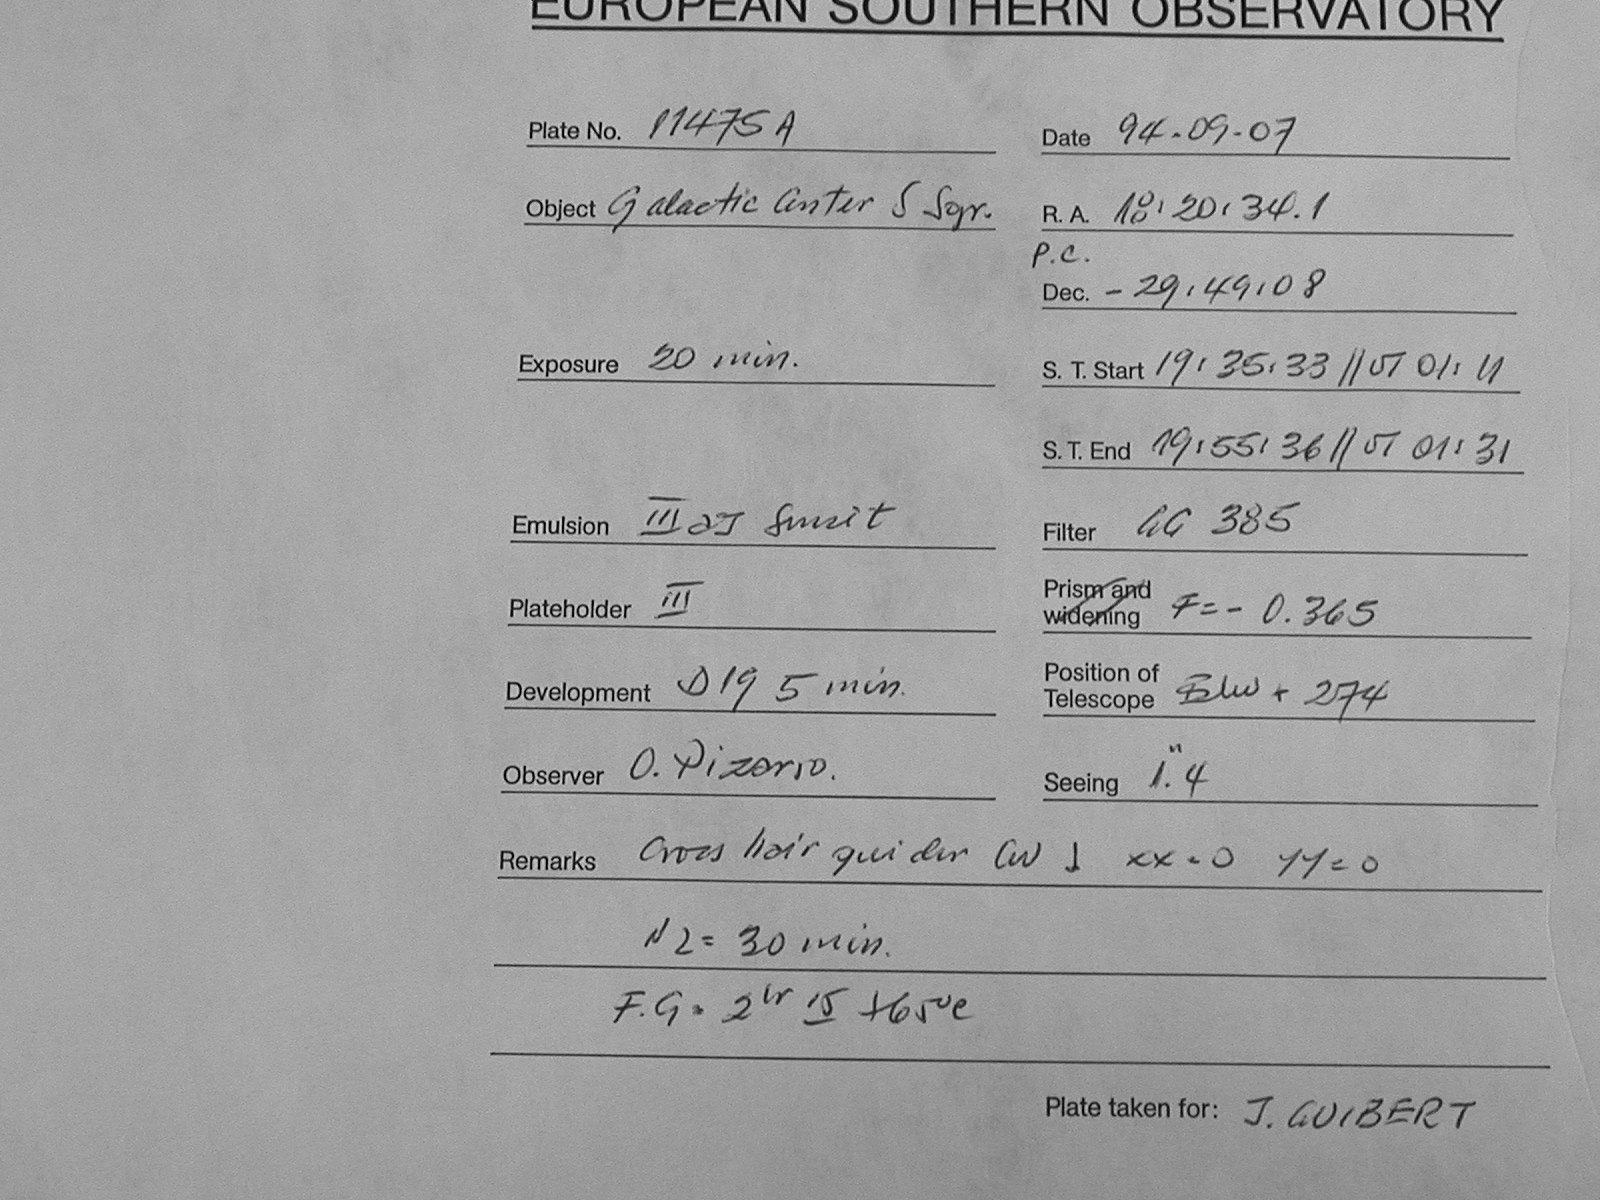 EUROPEAN SOUTHERN OBSERVATORY
Plate No. 11475 A
Date 94-09-07
Object Galactic Center S Sgr.
R. A. 18:20:34.1
P.C.
Dec. - 29:49:08
Exposure 20 min.
S. T. Start 19:35:33 // UT 01:11
S. T. End 19:55:36 // UT 01:31
Emulsion III aJ
Filter GG 385
Plateholder III
Prism and widening F = - 0.365
Development D19 5 min.
Position of Telescope + 274
Observer O. Pizarro.
Seeing 1".4
Remarks Cross hair guider xx = 0 yy = 0
N2 = 30 min.
F.G = 2hr 15 +65°C
Plate taken for: J. GUIBERT